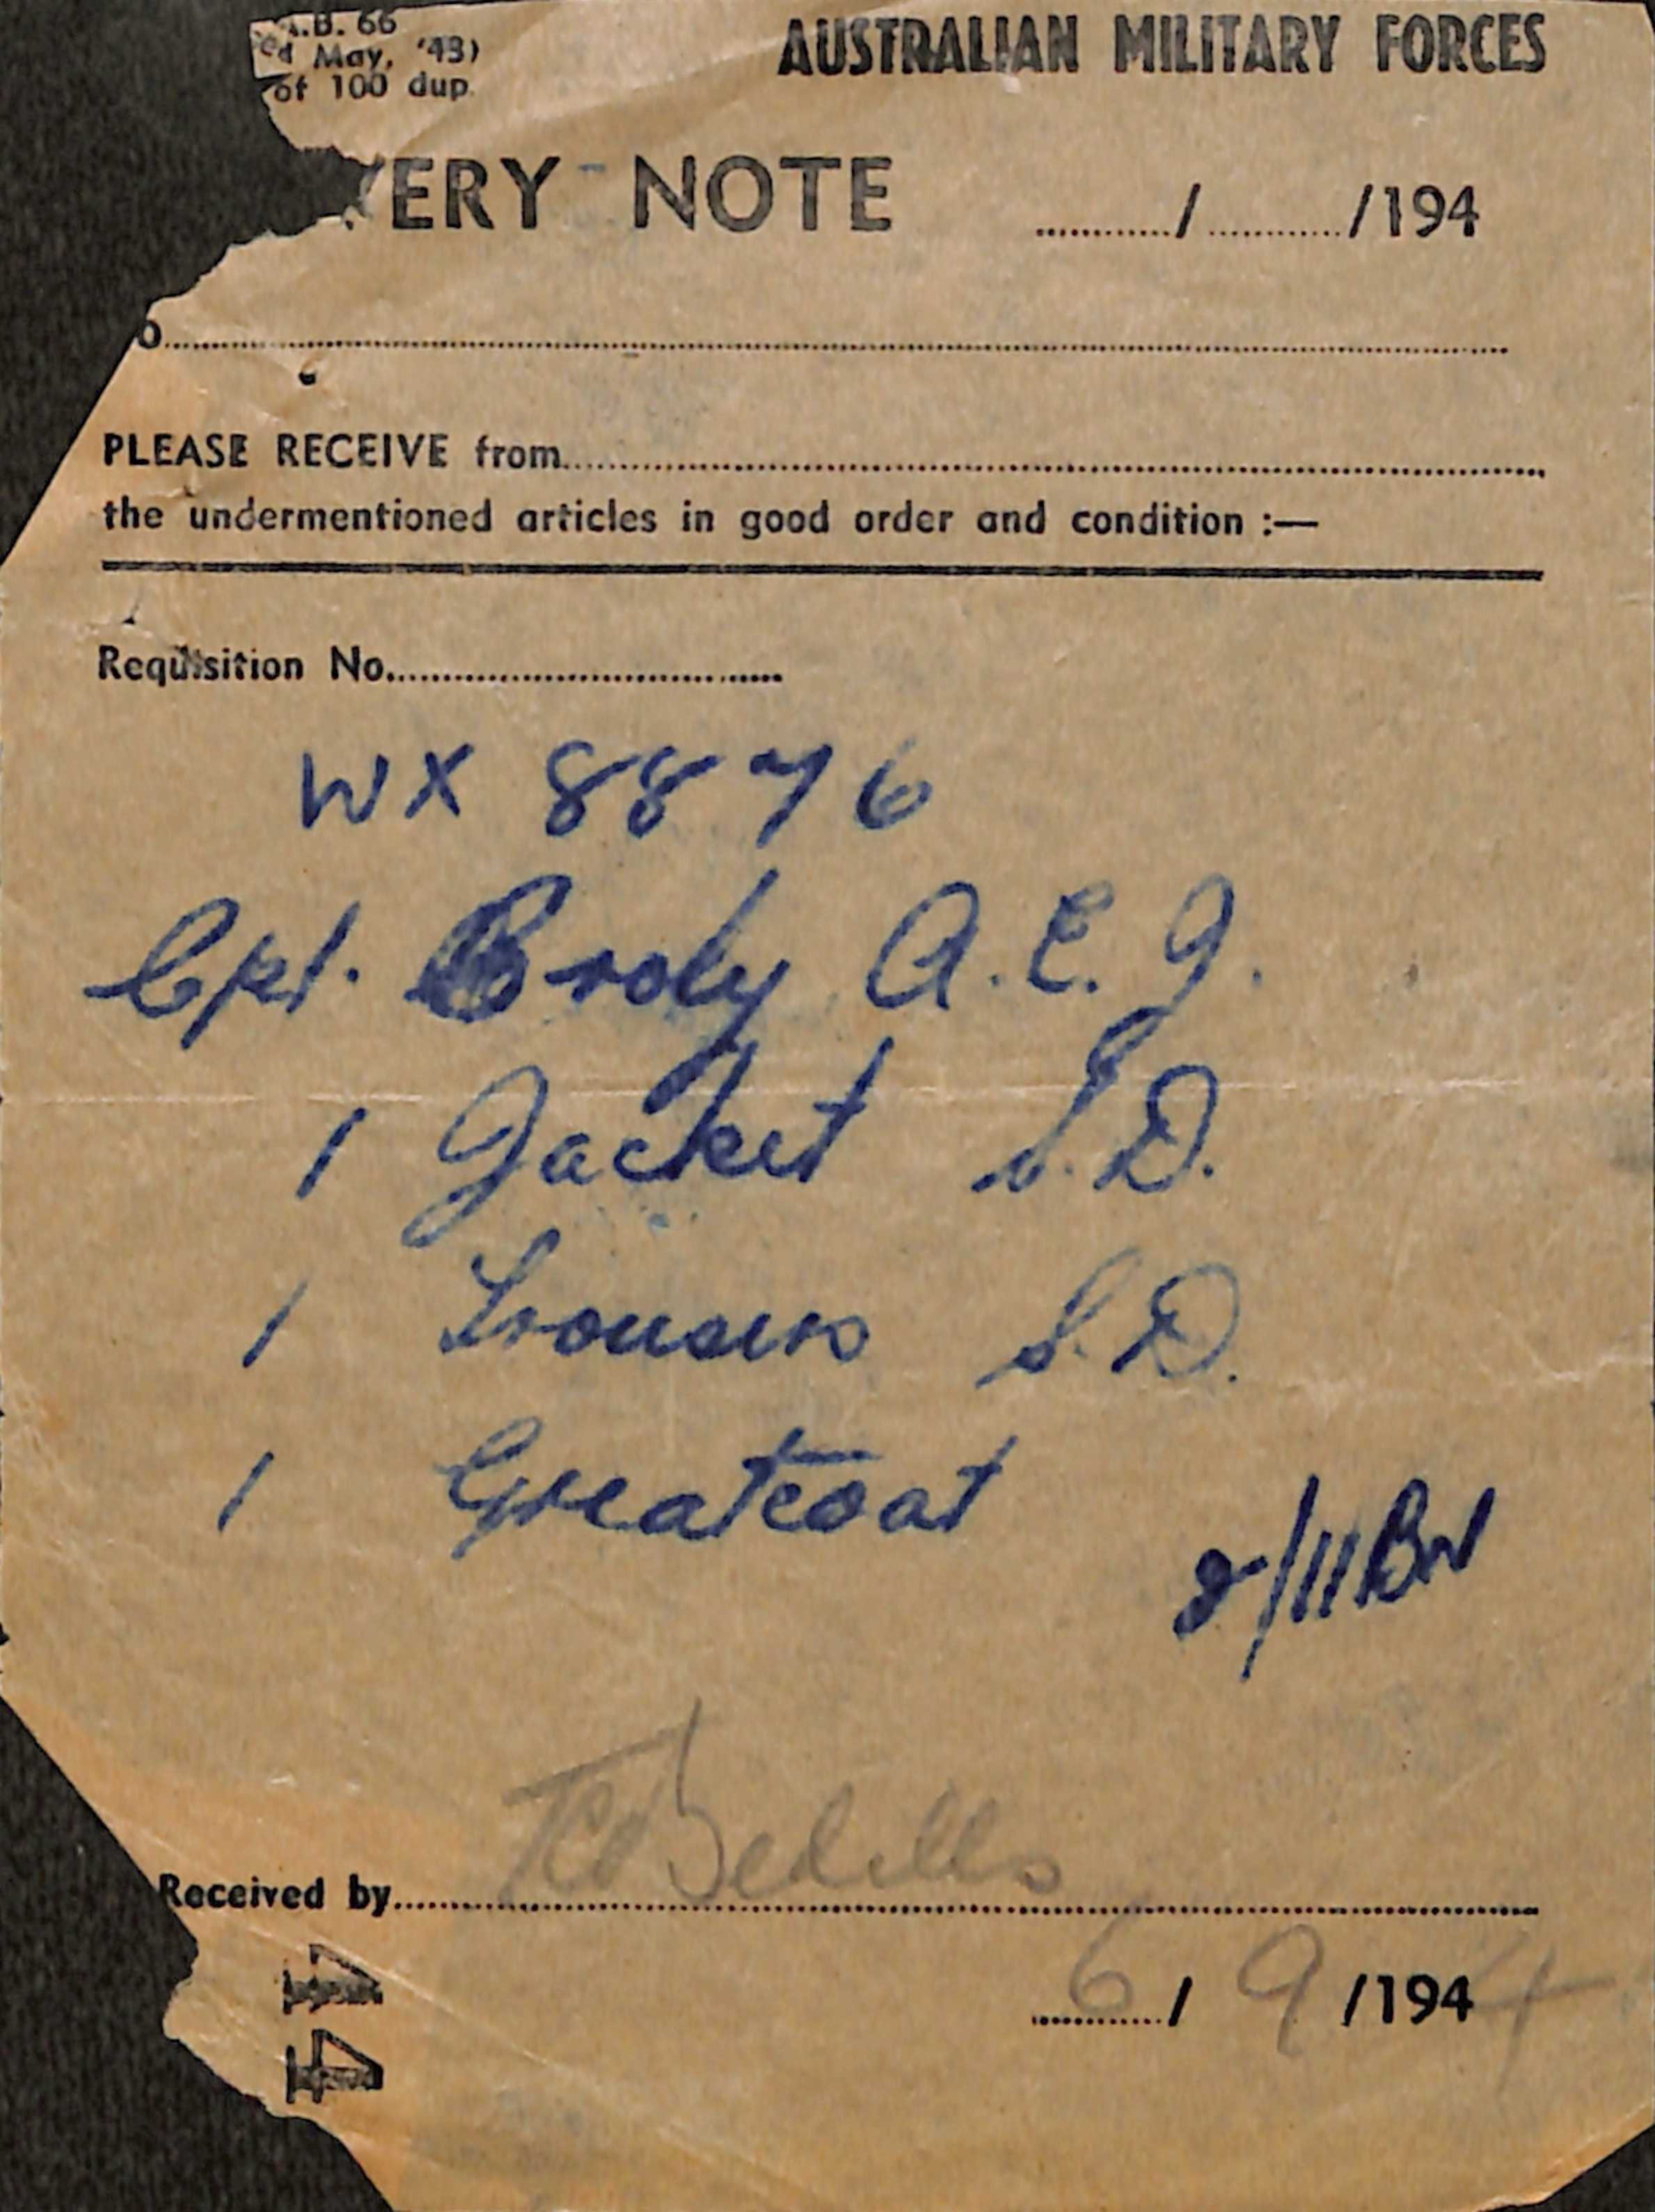 A.B. 66
ed May, '43)
of 100 dup.
AUSTRALIAN MILITARY FORCES
VERY NOTE ............/............/194
o....................
PLEASE RECEIVE from....................
the undermentioned articles in good order and condition :—
Requisition No....................
WX 8876
Cpl. Brody A. E. J.
1 Jacket S.D.
1 Trousers S.D.
1 Greatcoat
2/11 BN
Received by....................
6 / 9 /1944
44